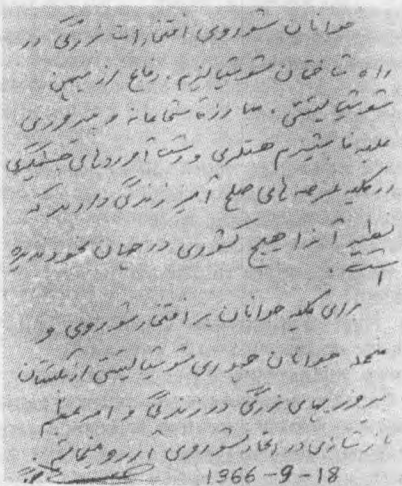 جوانان شوروی افتخارات بزرگی در
راه ساختمان سوسیالیزم، دفاع از میهن
سوسیالیستی، مبارزهٔ شجاعانه و پیروزی
علیه فاشیزم هتلری و دست آوردهای چشمگیری
در کلیه عرصه های صلح آمیز زندگی دارند که
نظیر آنرا هیچ کشوری در جهان بخود ندیده
است.
برای کلیه جوانان پر افتخار شوروی و
جوانان جمهوری سوسیالیستی ازبکستان
پیروزیهای بزرگی در زندگی و امر عظیم
در اتحاد شوروی آرزو مینمائیم.
1966-9-18